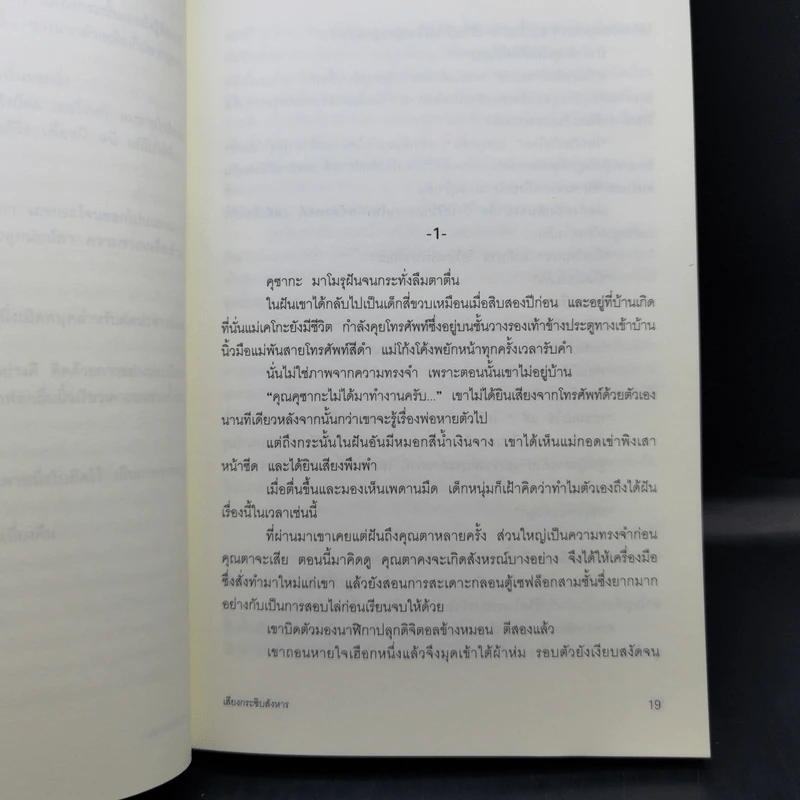 -1-
คุซากะ มาโมรุฝันจนกระทั่งลืมตาตื่น
ในฝันเขาได้กลับไปเป็นเด็กสี่ขวบเหมือนเมื่อสิบสองปีก่อน และอยู่ที่บ้านเกิด
ที่นั่นแม่เคโกะยังมีชีวิต กำลังคุยโทรศัพท์ซึ่งอยู่บนชั้นวางรองเท้าข้างประตูทางเข้าบ้าน
นิ้วมือแม่พันสายโทรศัพท์สีดำ แม่โก้งโค้งพยักหน้าทุกครั้งเวลารับคำ
นั่นไม่ใช่ภาพจากความทรงจำ เพราะตอนนั้นเขาไม่อยู่บ้าน
“คุณคุซากะไม่ได้มาทำงานครับ...” เขาไม่ได้ยินเสียงจากโทรศัพท์ด้วยตัวเอง
นานทีเดียวหลังจากนั้นกว่าเขาจะรู้เรื่องพ่อหายตัวไป
แต่ถึงกระนั้นในฝันอันมีหมอกสีน้ำเงินจาง เขาได้เห็นแม่กอดเข่าพิงเสา
หน้าซีด และได้ยินเสียงพึมพำ
เมื่อตื่นขึ้นและมองเห็นเพดานมืด เด็กหนุ่มก็เฝ้าคิดว่าทำไมตัวเองถึงได้ฝัน
เรื่องนี้ในเวลาเช่นนี้
ที่ผ่านมาเขาเคยแต่ฝันถึงคุณตาหลายครั้ง ส่วนใหญ่เป็นความทรงจำก่อน
คุณตาจะเสีย ตอนนี้มาคิดดู คุณตาคงจะเกิดสังหรณ์บางอย่าง จึงได้ให้เครื่องมือ
ซึ่งสั่งทำมาใหม่แก่เขา แล้วยังสอนการสะเดาะกลอนตู้เซฟล็อกสามชั้นซึ่งยากมาก
อย่างกับเป็นการสอบไล่ก่อนเรียนจบให้ด้วย
เขาบิดตัวมองนาฬิกาปลุกดิจิตอลข้างหมอน ตีสองแล้ว
เขาถอนหายใจเฮือกหนึ่งแล้วจึงมุดเข้าใต้ผ้าห่ม รอบตัวยังเงียบสงัดจน
เสียงกระซิบสังหาร
19